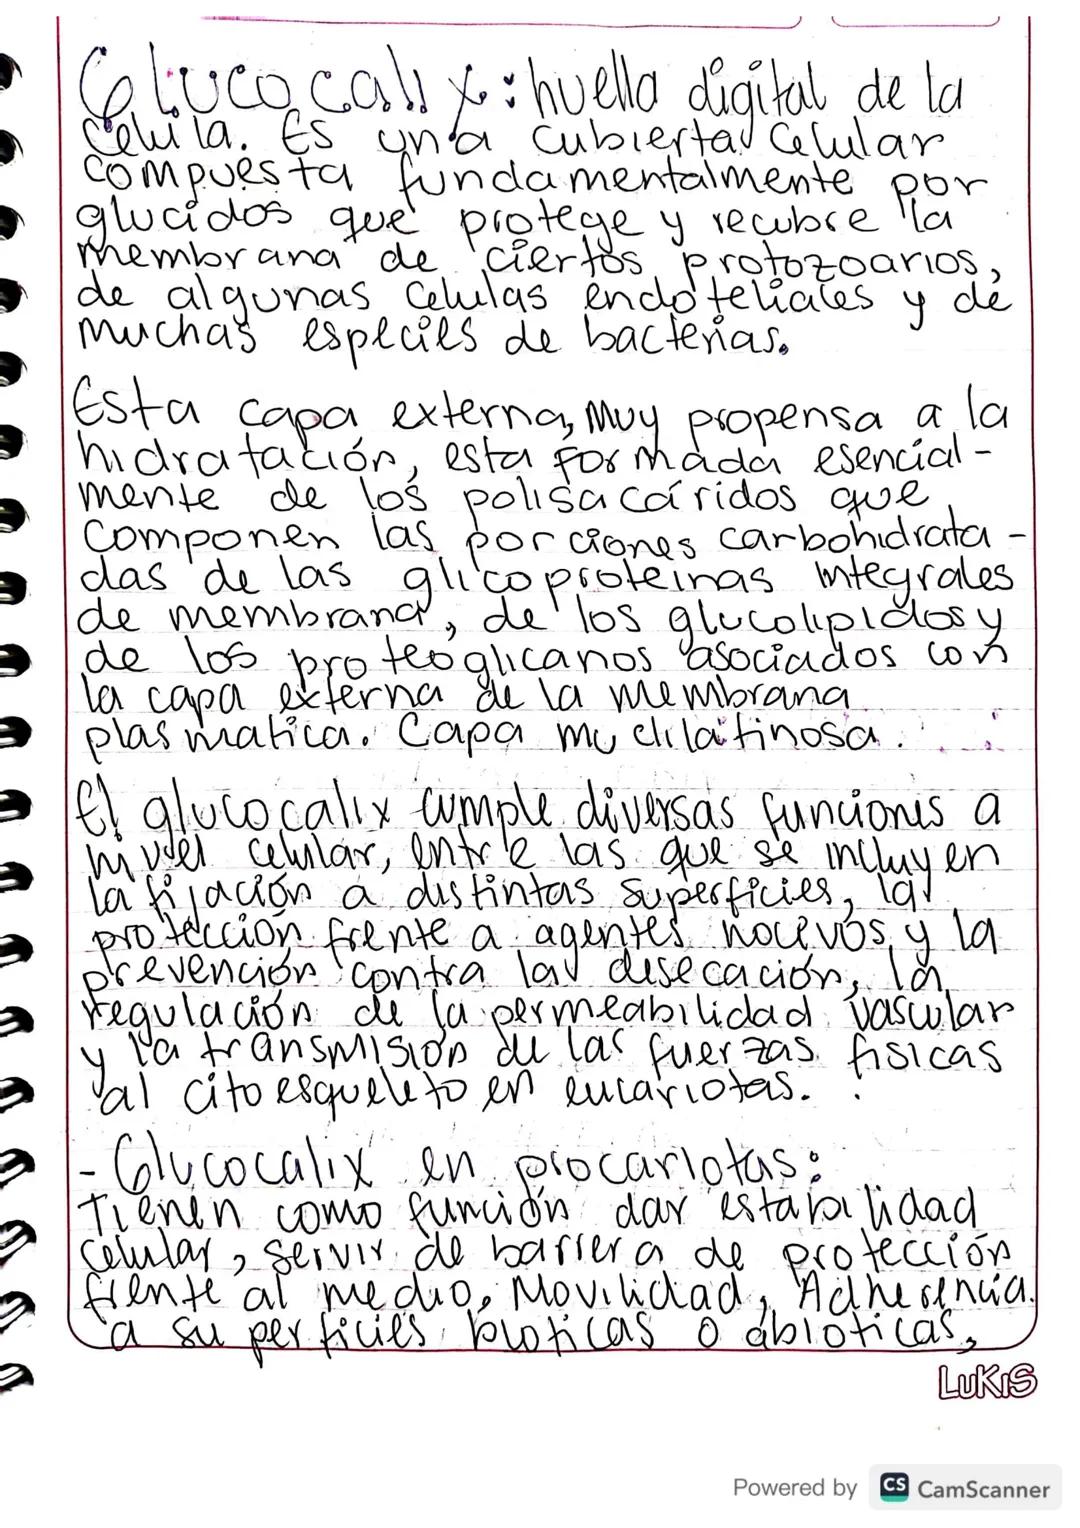 Glucocalix: huella digital de la
célula. Es una cubierta celular
compuesta fundamentalmente por
glucidos que protege y recubre la
membrana de ciertos protozoarios,
de algunas células endoteliales y de
muchas especies de bacterias.
Esta capa externa, muy propensa a la
hidratación, esta formada esencial-
mente de los polisacáridos que
componen las porciones carbohidrata-
das de las glicoproteinas integrales
de membrana, de los glucolipidos y
de los proteoglicanos asociados con
la capa externa de la membrana
plasmatica. Capa muclilatinosa.
El glucocalix cumple diversas funciones a
nivel celular, entre las que se incluyen
la fijación a distintas superficies, la
protección frente a agentes nocivos, y la
prevención contra la desecación, la
regulación de la permeabilidad vascular
y la transmisión de las fuerzas fisicas
al citoesqueleto en eucariotas.
- Glucocalix en procariotas:
Tienen como función dar estabilidad
celular, servir de barrera de protección
frente al medio, Movilidad, Adherencia
a superficies bioticas o abioticas,
LUKIS
Powered by CS CamScanner